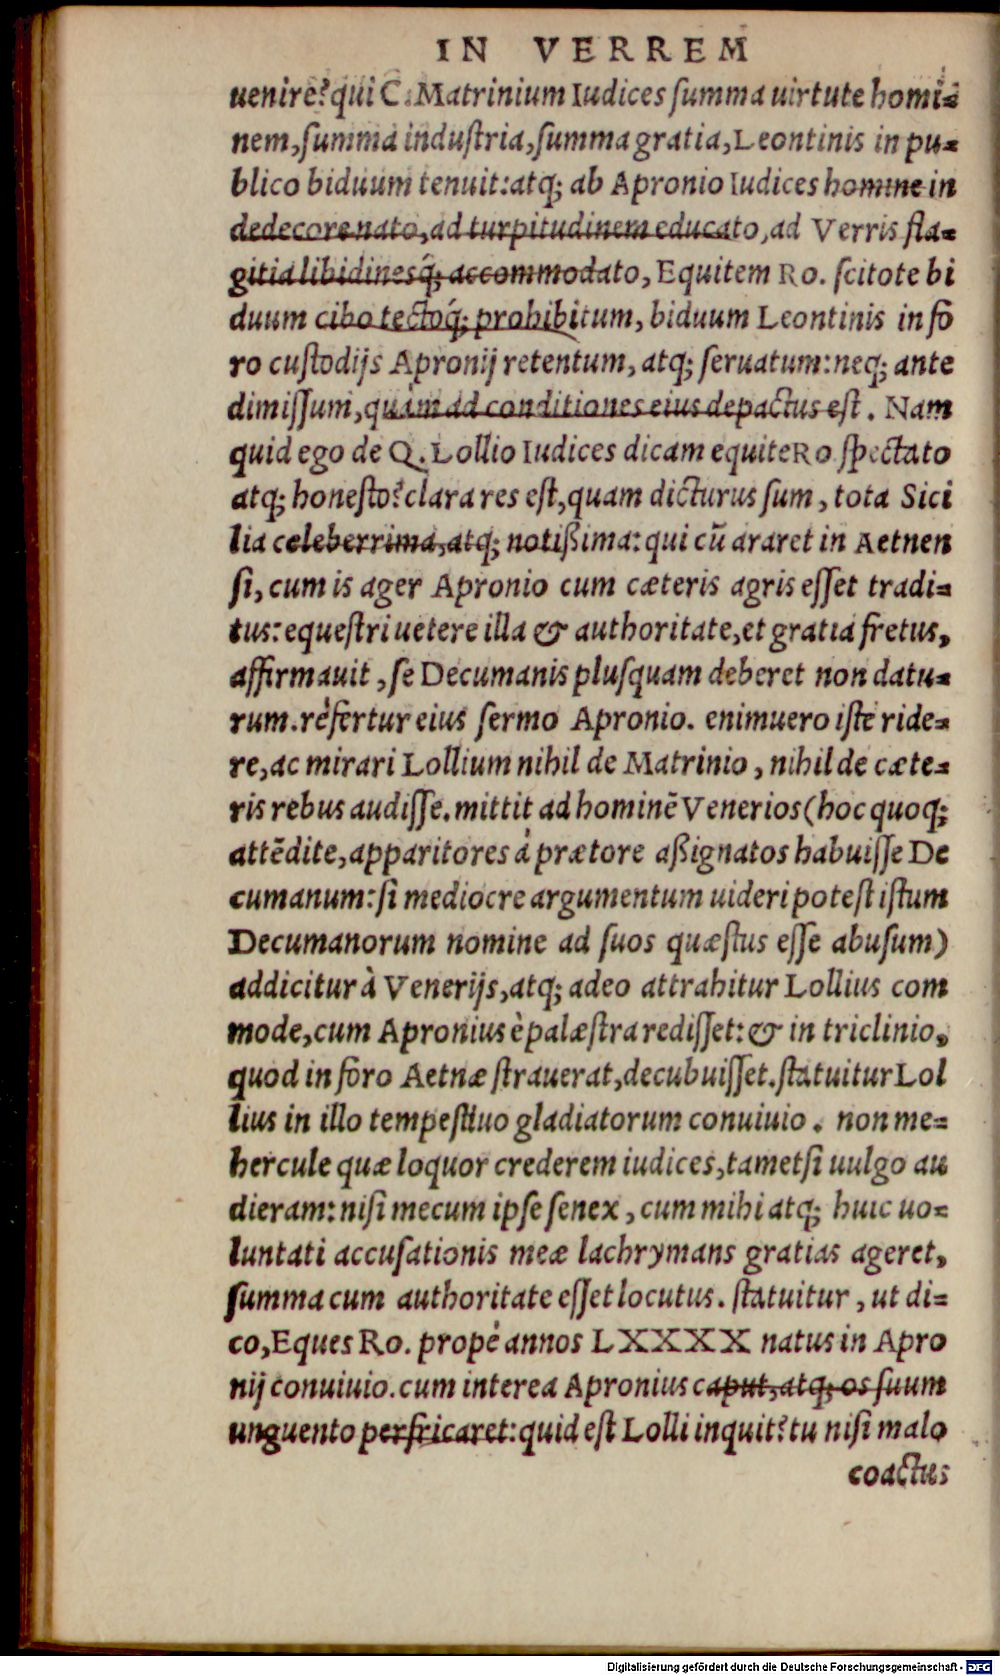 IN VERREM
uenire? qui C. Matrinium Iudices summa uirtute homi-
nem, summa industria, summa gratia, Leontinis in pu-
blico biduum tenuit: atq; ab Apronio Iudices homine in
dedecore nato, ad turpitudinem educato, ad Verris fla-
gitia libidinesq́; accommodato, Equitem Ro. scitote bi
duum cibo tectoq́; prohibitum, biduum Leontinis in fo
ro custodijs Apronij retentum, atq; seruatum: neq; ante
dimissum, quàm ad conditiones eius depactus est. Nam
quid ego de Q. Lollio Iudices dicam equite Ro. spectato
atq; honesto? clara res est, quam dicturus sum, tota Sici
lia celeberrima, atq; notißima: qui cũ araret in Aetnen
si, cum is ager Apronio cum cæteris agris esset tradi-
tus: equestri uetere illa & authoritate, et gratia fretus,
affirmauit, se Decumanis plusquam deberet non datu-
rum. refertur eius sermo Apronio. enimuero iste ride-
re, ac mirari Lollium nihil de Matrinio, nihil de cæte-
ris rebus audisse. mittit ad hominẽ Venerios (hoc quoq;
attẽdite, apparitores à prætore aßignatos habuisse De
cumanum: si mediocre argumentum uideri potest istum
Decumanorum nomine ad suos quæstus esse abusum)
addicitur à Venerijs, atq; adeo attrahitur Lollius com
mode, cum Apronius è palæstra redisset: & in triclinio,
quod in foro Aetnæ strauerat, decubuisset. statuitur Lol
lius in illo tempestiuo gladiatorum conuiuio. non me-
hercule quæ loquor crederem iudices, tametsi uulgo au
dieram: nisi mecum ipse senex, cum mihi atq; huic uo-
luntati accusationis meæ lachrymans gratias ageret,
summa cum authoritate esset locutus. statuitur, ut di-
co, Eques Ro. propè annos LXXXX natus in Apro
nij conuiuio. cum interea Apronius caput, atq; os suum
unguento perfricaret: quid est Lolli inquit? tu nisi malo
coactus
Digitalisierung gefördert durch die Deutsche Forschungsgemeinschaft - DFG